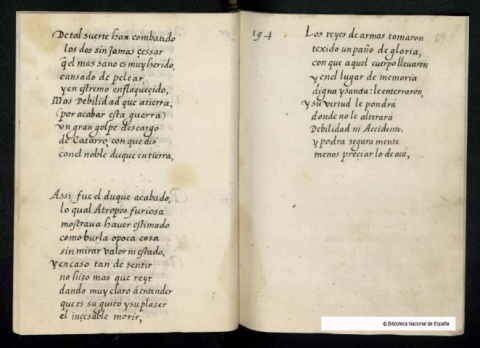 De tal suerte han combatido
los dos sin jamas cessar
q̃l mas sano es muy herido,
cansado de pelear,
y en estremo enflaquecido,
Mas Debilidad que atierra,
(por acabar esta guerra)
un gran golpe descargo
de Catarro, con que dio
con el noble duque en tierra,
Assi fue el duque acabado,
lo qual Atropos furiosa
mostraua hauer estimado
como burla o poca cosa
sin mirar valor ni estado,
y en caso tan de sentir
no hizo mas que reyr
dando muy claro á entender
que es su gusto y su plazer
el incessable morir,
194
69
Los reyes de armas tomaron
texido un paño de gloria,
con que aquel cuerpo lleuaron
y en el lugar de memoria
digna y sancta le enterraron,
y su virtud le pondrá
donde no le alterará
Debilidad ni Accidente.
y podra seguramente
menospreciar lo de acá,
© Biblioteca Nacional de España